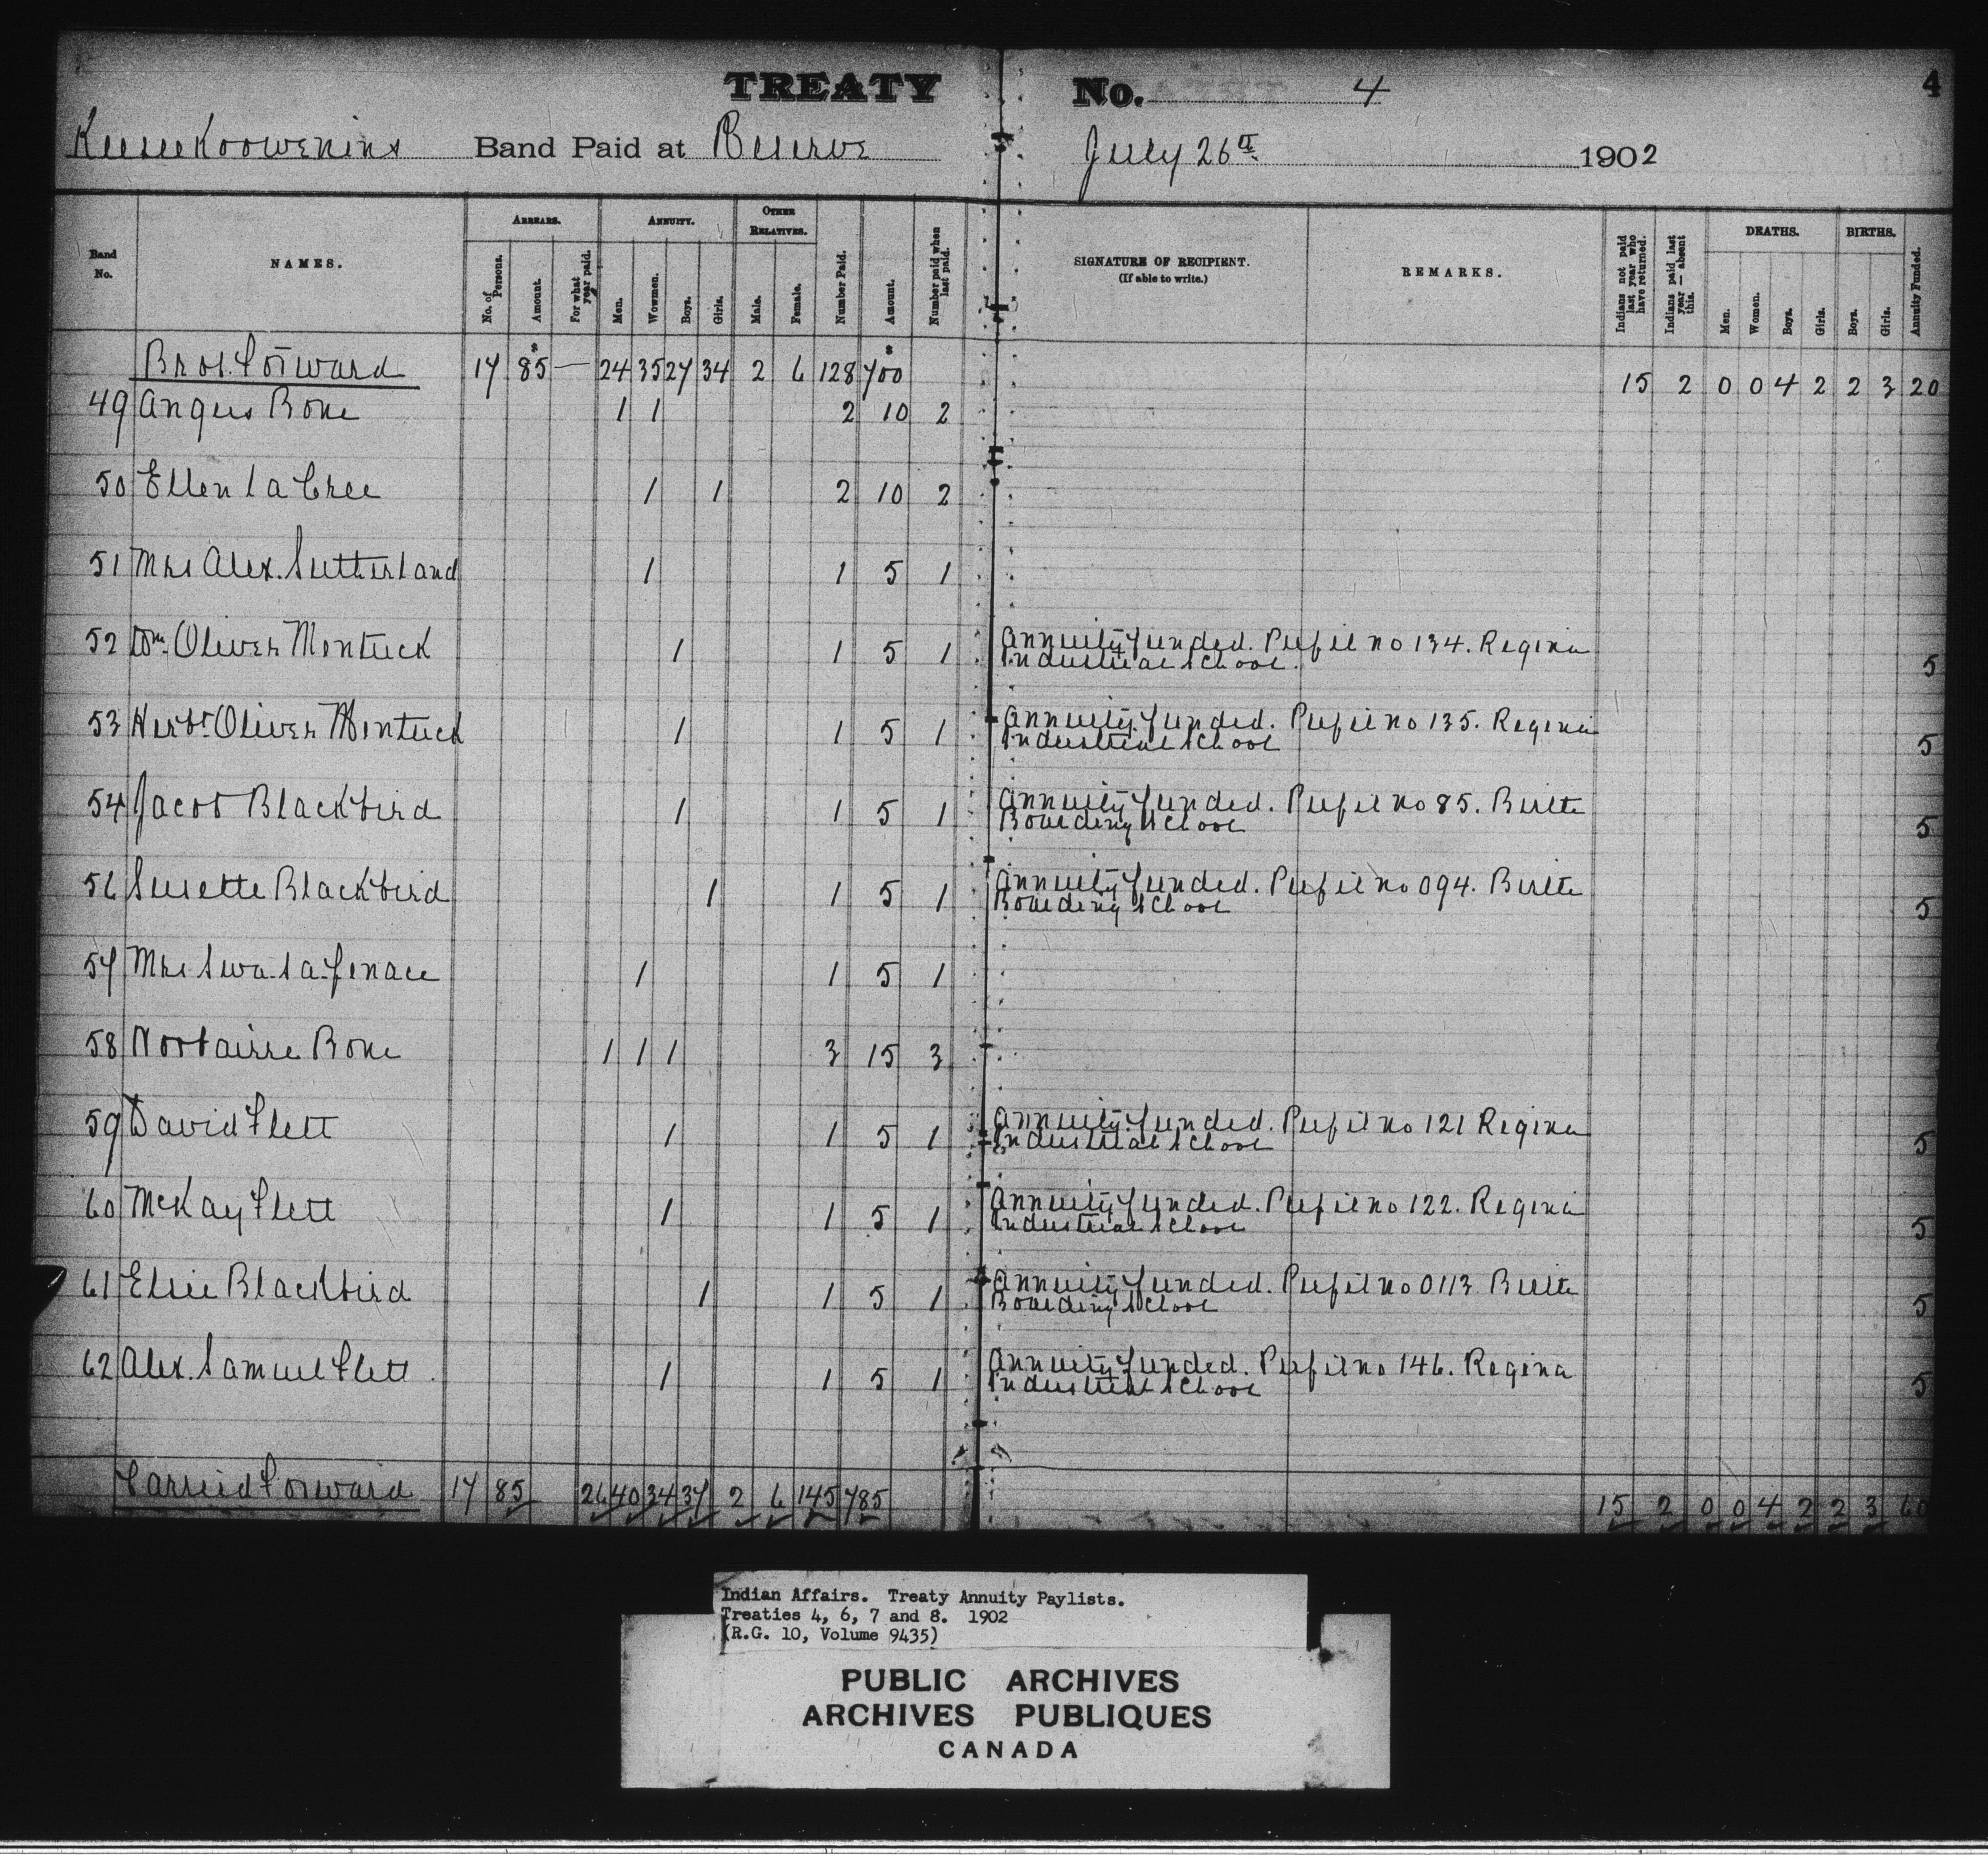 TREATY No. 4 4
Keeseekoowenins Band Paid at Reserve July 26th 1902
Band No.
NAMES.
ARREARS.
No. of Persons.
Amount.
For what year paid.
ANNUITY.
Men.
Wowmen.
Boys.
Girls.
OTHER RELATIVES.
Male.
Female.
Number Paid.
Amount.
Number paid when last paid.
SIGNATURE OF RECIPIENT.
(If able to write.)
REMARKS.
Indians not paid last year who have returned.
Indians paid last year — absent this.
DEATHS.
Men.
Women.
Boys.
Girls.
BIRTHS.
Boys.
Girls.
Annuity Funded.
Brot. Forward 17 85 — 24 35 27 34 2 6 128 700 15 2 0 0 4 2 2 3 20
49 Angus Bone 1 1 2 10 2
50 Ellen La Cree 1 1 2 10 2
51 Mrs Alex. Sutherland 1 1 5 1
52 Wm. Oliver Mentuck 1 1 5 1 Annuity funded. Pupil no 134. Regina
Industrial School. 5
53 Herbt Oliver Mentuck 1 1 5 1 Annuity funded. Pupil no 135. Regina
Industrial School 5
54 Jacob Blackbird 1 1 5 1 Annuity funded. Pupil no 85. Birtle
Boarding School 5
56 Susette Blackbird 1 1 5 1 Annuity funded. Pupil no 094. Birtle
Boarding School 5
57 Mrs 1 1 5 1
58 Bone 1 1 1 3 15 3
59 David Flett 1 1 5 1 Annuity funded. Pupil no 121 Regina
Industrial School 5
60 McKay Flett 1 1 5 1 Annuity funded. Pupil no 122. Regina
Industrial School 5
61 Elsie Blackbird 1 1 5 1 Annuity funded. Pupil no 0113 Birtle
Boarding School 5
62 Alex. Samuel Flett 1 1 5 1 Annuity funded. Pupil no 146. Regina
Industrial School 5
Carreid Forward 17 85 26 40 34 37 2 6 145 785 15 2 0 0 4 2 2 3 60
Indian Affairs. Treaty Annuity Paylists.
Treaties 4, 6, 7 and 8. 1902
(R.G. 10, Volume 9435)
PUBLIC ARCHIVES
ARCHIVES PUBLIQUES
CANADA